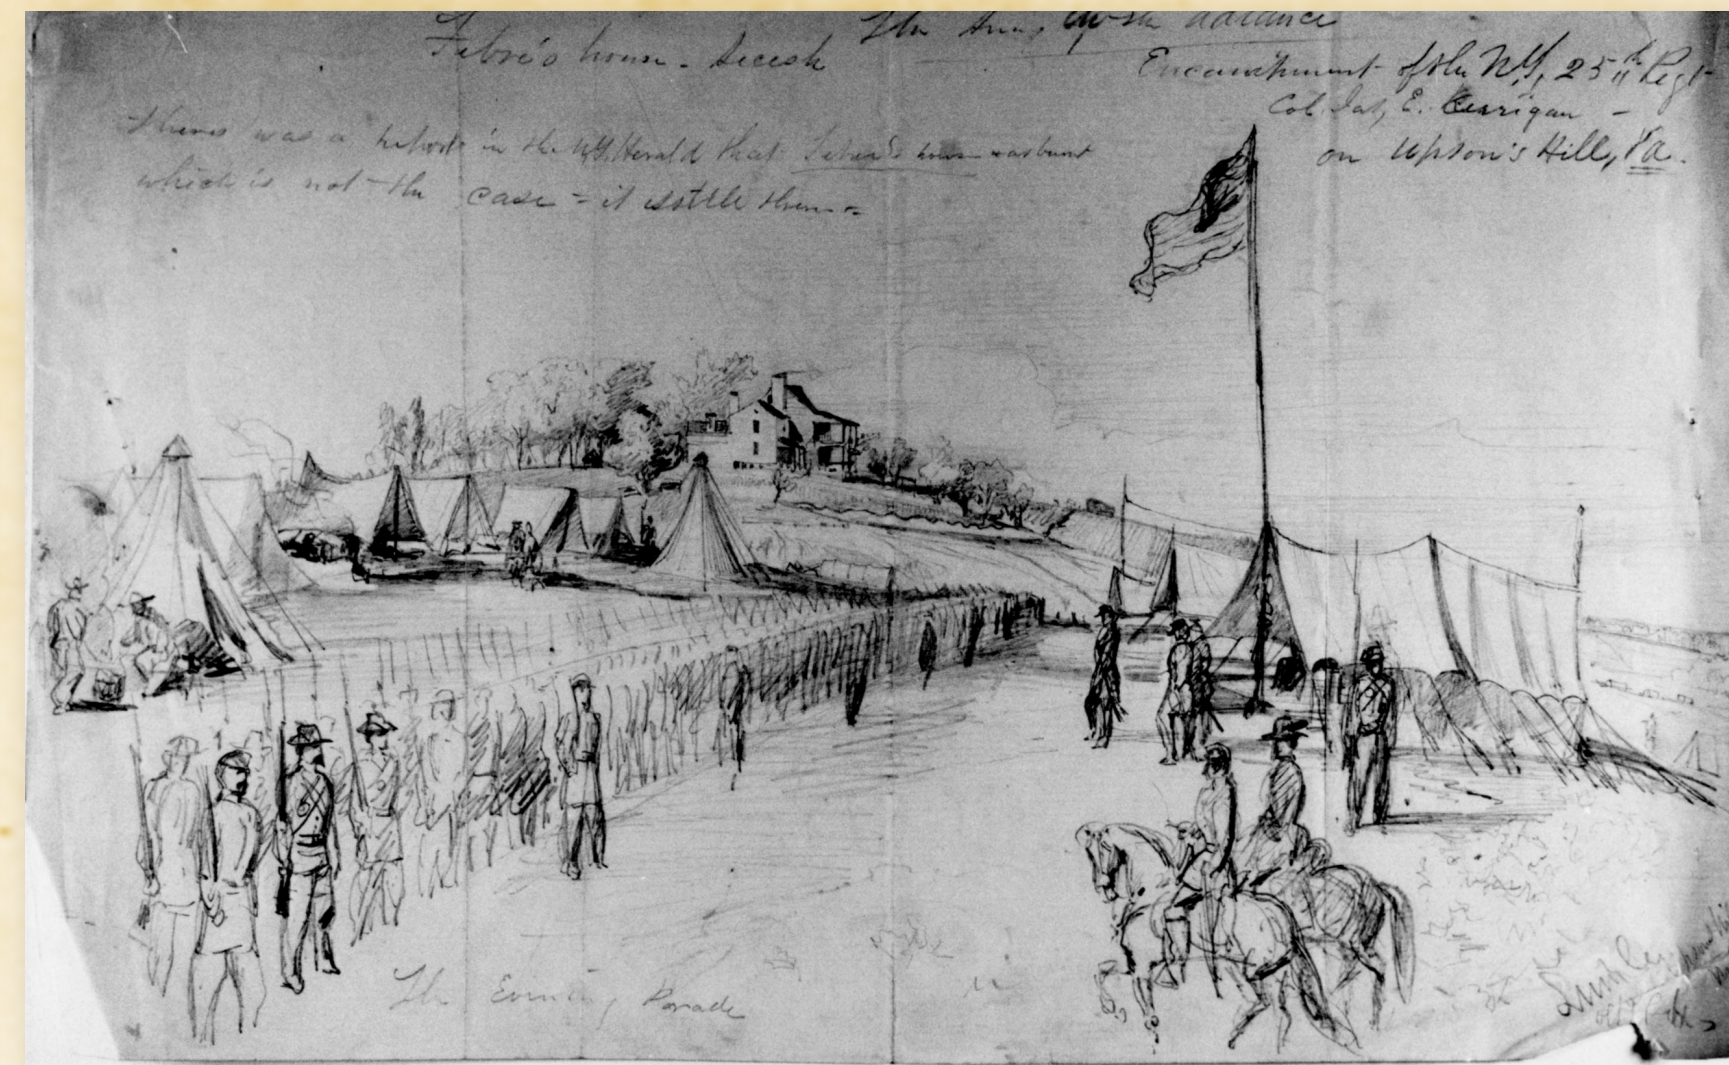 The Army upon advance
Febre's house - Secesh
Encampment of the N.Y. 25th Regt
Col. Jas. E. Kerrigan -
on Upton's Hill, Va.
There was a report in the N.Y. Herald that Febre's house was burnt
which is not the case - it is still there -
The Evening Parade